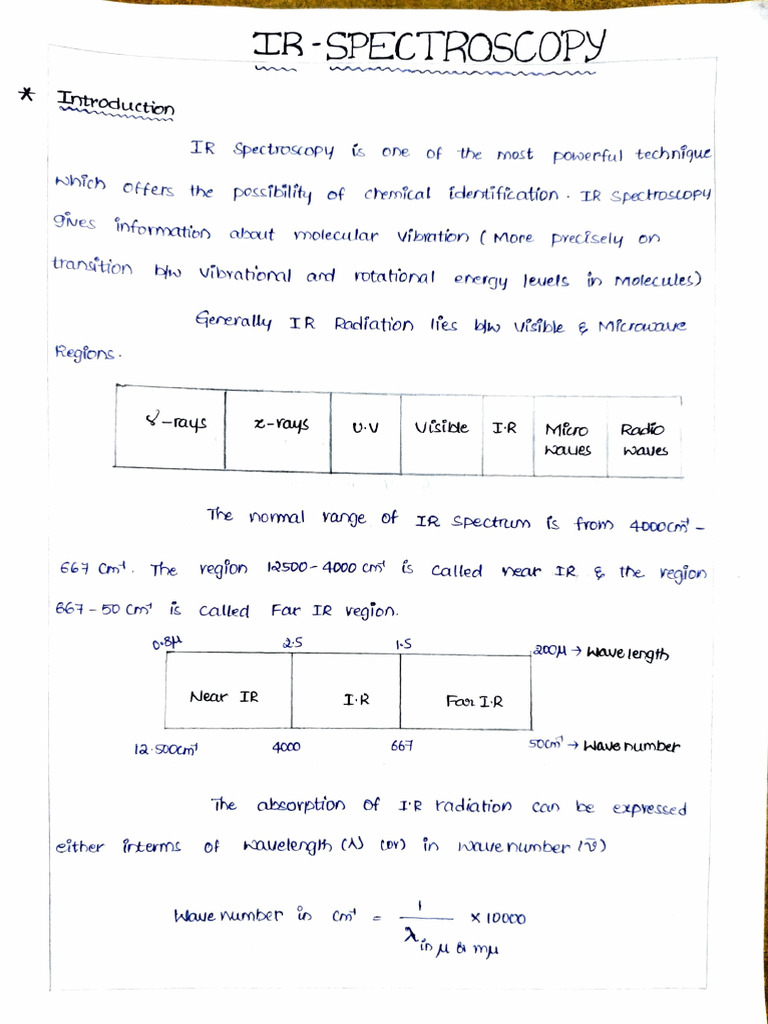 IR-SPECTROSCOPY
* Introduction
IR Spectroscopy is one of the most powerful technique
which offers the possibility of chemical identification. IR Spectroscopy
gives information about molecular vibration (More precisely on
transition b/w vibrational and rotational energy levels in molecules)
Generally IR Radiation lies b/w visible & Microwave
Regions.
γ-rays x-rays U.V Visible I.R Micro waves Radio waves
The normal range of IR spectrum is from 4000cm⁻¹ -
667 cm⁻¹. The region 12500-4000 cm⁻¹ is called near IR & the region
667-50 cm⁻¹ is called Far IR region.
0.8μ 2.5 1.5 200μ → Wavelength
Near IR I.R Far I.R
12.500cm⁻¹ 4000 667 50cm⁻¹ → Wavenumber
The absorption of I.R radiation can be expressed
either interms of wavelength (λ) (or) in wavenumber (ν̄)
Wavenumber in cm⁻¹ = 1 / λ in μ or mμ × 10000